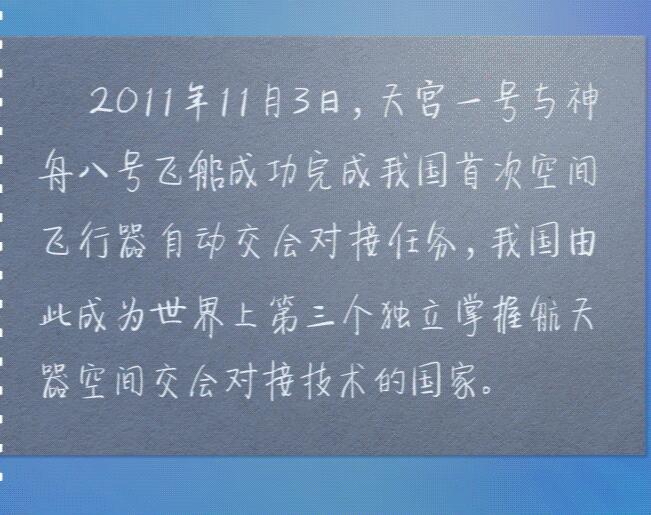 2011年11月3日，天宫一号与神
舟八号飞船成功完成我国首次空间
飞行器自动交会对接任务，我国由
此成为世界上第三个独立掌握航天
器空间交会对接技术的国家。